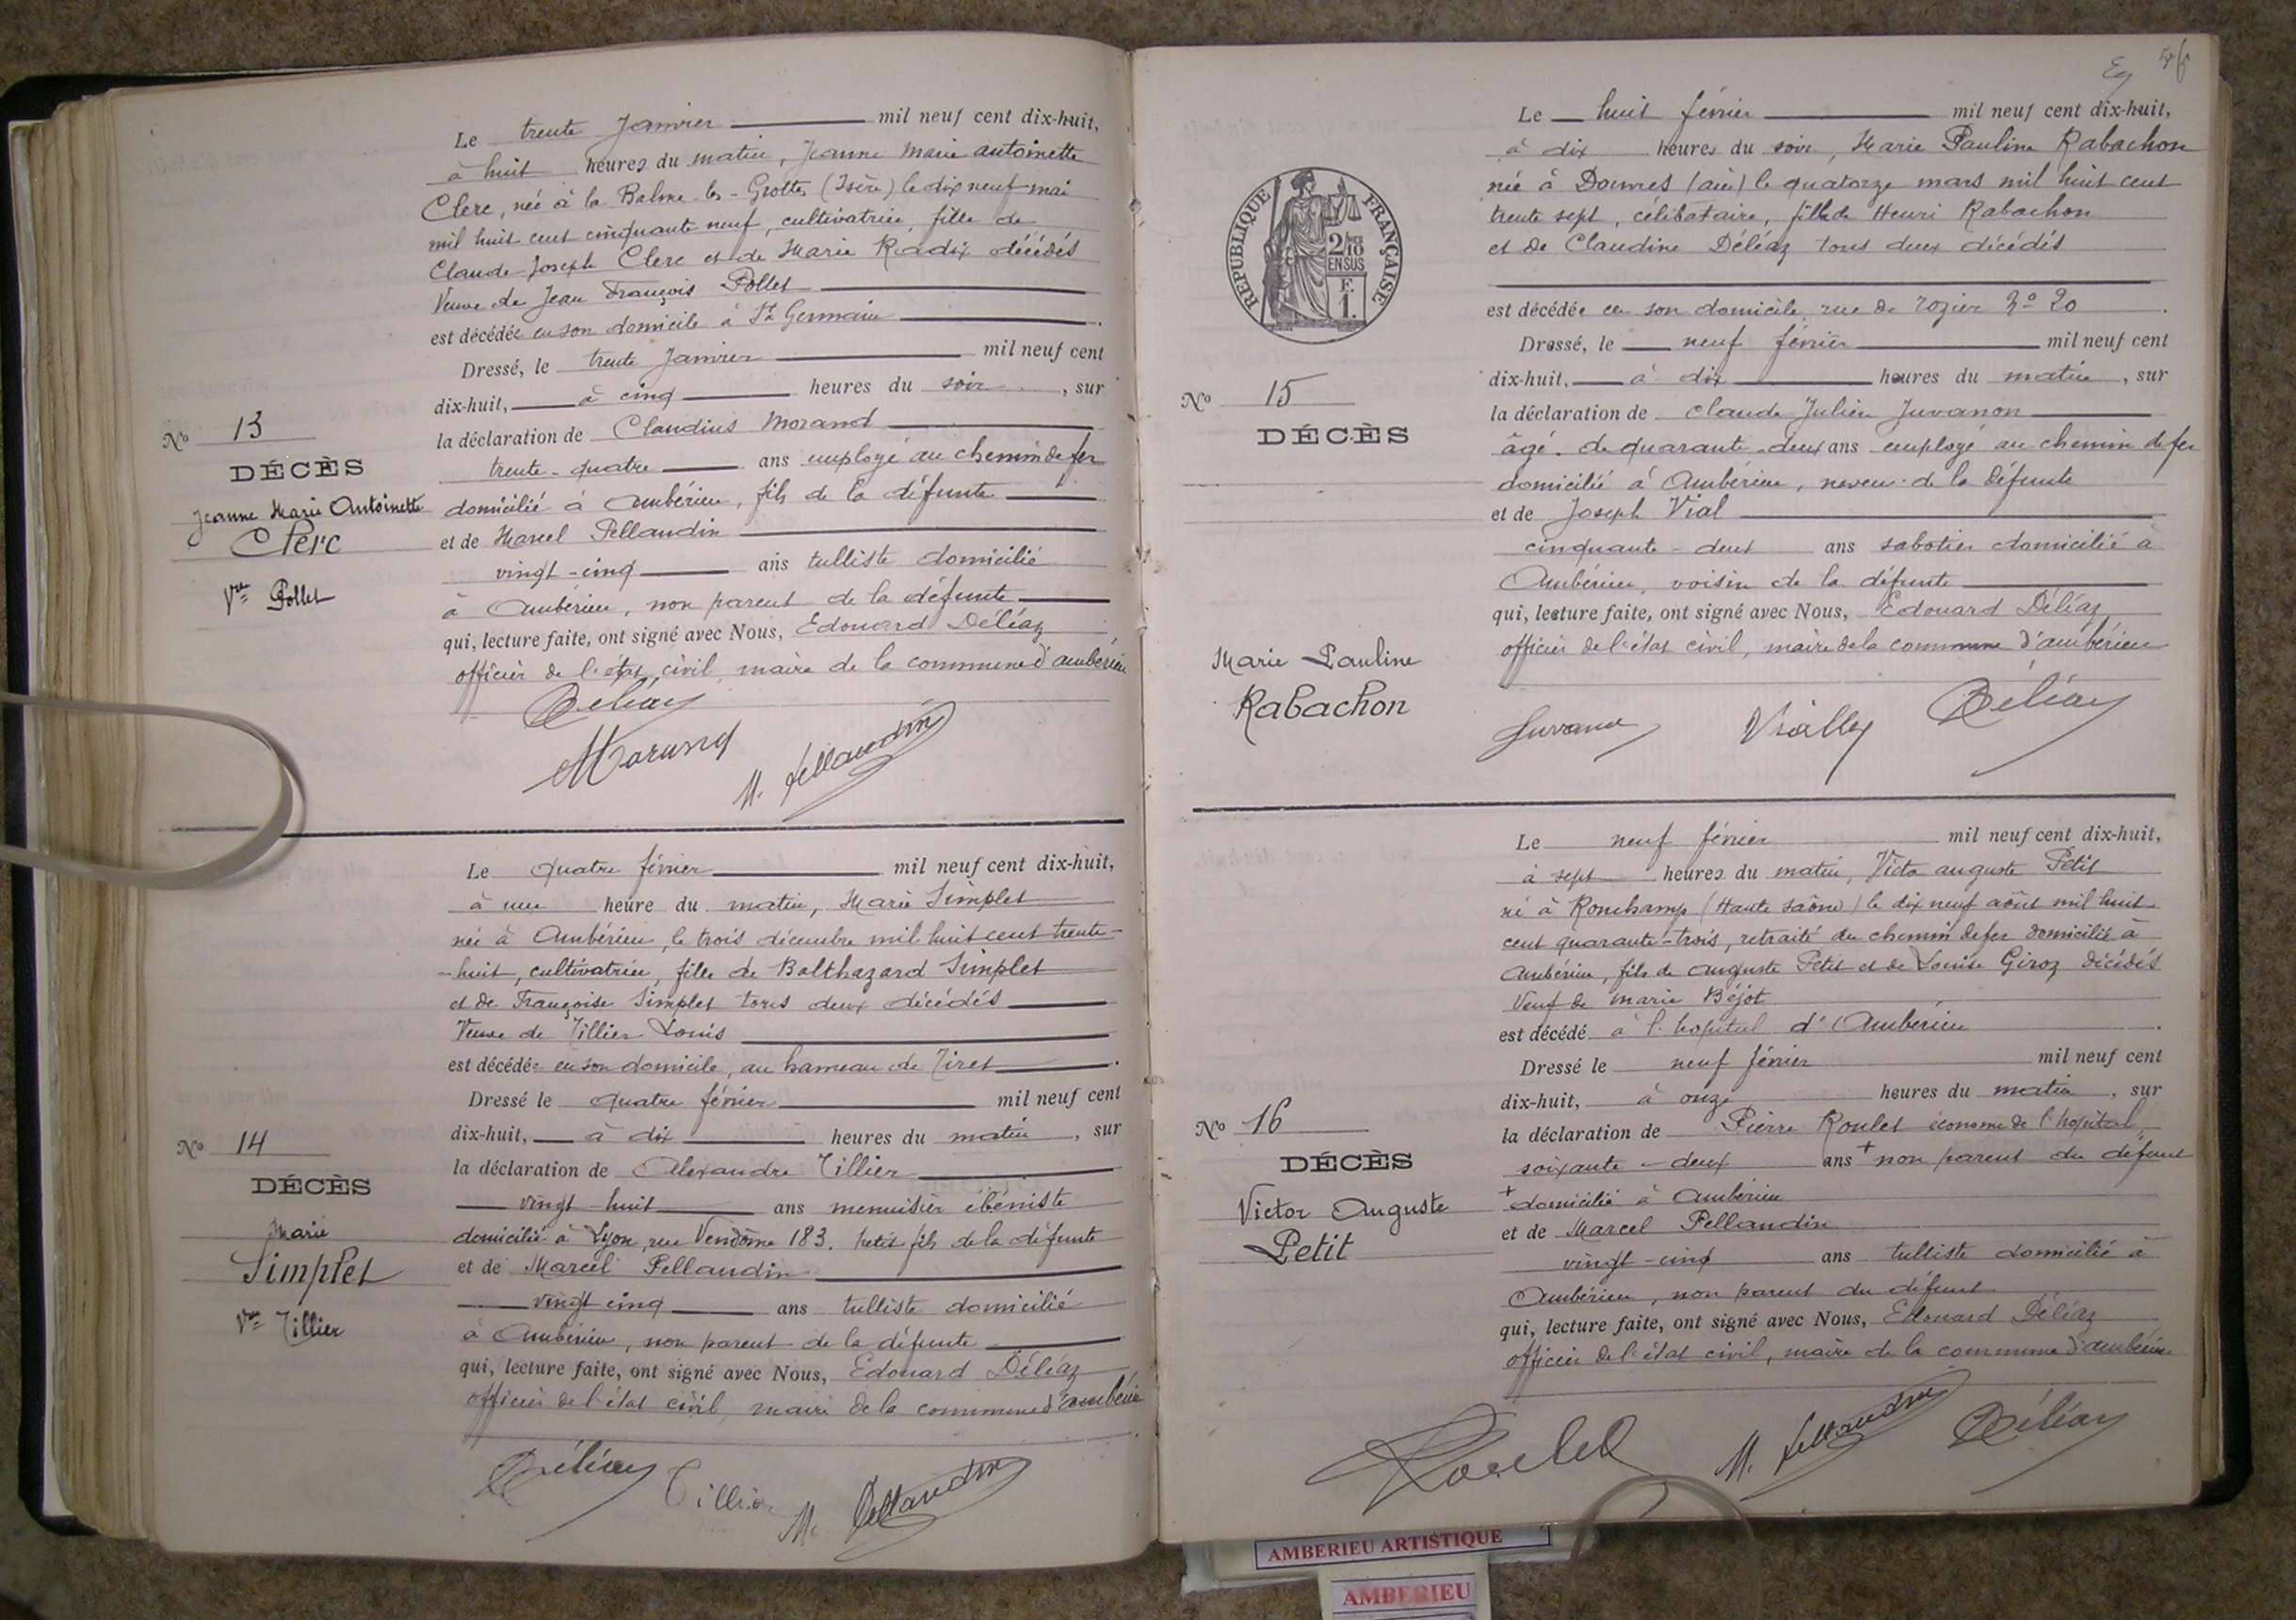 Le trente Janvier mil neuf cent dix-huit,
à huit heures du matin, Jeanne Marie Antoinette
Clerc, née à la Balme-les-Grottes (Isère) le dix neuf mai
mil huit cent cinquante neuf, cultivatrice, fille de
Claude Joseph Clerc et de Marie Radix décédés
Veuve de Jean François Pollet
est décédée en son domicile à St Germain.
Dressé, le trente Janvier mil neuf cent
dix-huit, à cinq heures du soir, sur
la déclaration de Claudius Morand
trente-quatre ans employé au chemin de fer
domicilié à Ambérieu, fils de la défunte
et de Marcel Pellaudin
vingt-cinq ans tulliste domicilié
à Ambérieu, non parent de la défunte
qui, lecture faite, ont signé avec Nous, Edouard Déléaz
officier de l'état civil, maire de la commune d'ambérieu
Déléaz
Morand
M. Pellaudin
No 13
DÉCÈS
Jeanne Marie Antoinette
Clerc
Vve Pollet
Le quatre février mil neuf cent dix-huit,
à une heure du matin, Marie Simplet
née à Ambérieu, le trois décembre mil huit cent trente-
-huit, cultivatrice, fille de Balthazard Simplet
et de Françoise Simplet tous deux décédés
Veuve de Tillier Louis
est décédée en son domicile, au hameau de Tiret.
Dressé le quatre février mil neuf cent
dix-huit, à dix heures du matin, sur
la déclaration de Alexandre Tillier
vingt-huit ans menuisier ébéniste
domicilié à Lyon, rue Vendôme 183. petit fils de la défunte
et de Marcel Pellaudin
vingt cinq ans tulliste domicilié
à Ambérieu, non parent de la défunte
qui, lecture faite, ont signé avec Nous, Edouard Déléaz
officier de l'état civil, maire de la commune d'ambérieu
Déléaz Tillier M. Pellaudin
No 14
DÉCÈS
Marie
Simplet
Vve Tillier
46
Le huit février mil neuf cent dix-huit,
à dix heures du soir, Marie Pauline Rabachon
née à Douvres (ain) le quatorze mars mil huit cent
trente sept, célibataire, fille de Henri Rabachon
et de Claudine Déléaz tous deux décédés
est décédée en son domicile, rue de rozier No 20.
Dressé, le neuf février mil neuf cent
dix-huit, à dix heures du matin, sur
la déclaration de Claude Julien Juvanon
âgé de quarante-deux ans employé au chemin de fer
domicilié à Ambérieu, neveu de la défunte
et de Joseph Vial
cinquante-deux ans sabotier domicilié à
Ambérieu, voisin de la défunte
qui, lecture faite, ont signé avec Nous, Edouard Déléaz
officier de l'état civil, maire de la commune d'ambérieu
Juvanon Déléaz
RÉPUBLIQUE FRANÇAISE
2/10
EN SUS
F.
1.
No 15
DÉCÈS
Marie Pauline
Rabachon
Le neuf février mil neuf cent dix-huit,
à sept heures du matin, Victor auguste Petit
né à Ronchamp (Haute saône) le dix neuf août mil huit
cent quarante-trois, retraité du chemin de fer domicilié à
Ambérieu, fils de auguste Petit et de Louise Giroz décédés
Veuf de marie Béjot
est décédé à l'hopital d'Ambérieu.
Dressé le neuf février mil neuf cent
dix-huit, à onze heures du matin, sur
la déclaration de Pierre Roulet économe de l'hopital,
soixante-deux ans + non parent du défunt
+ domicilié à Ambérieu
et de Marcel Pellaudin
vingt-cinq ans tulliste domicilié à
Ambérieu, non parent du défunt
qui, lecture faite, ont signé avec Nous, Edouard Déléaz
officier de l'état civil, maire de la commune d'ambérieu
Roulet M. Pellaudin Déléaz
No 16
DÉCÈS
Victor Auguste
Petit
AMBERIEU ARTISTIQUE
AMBERIEU